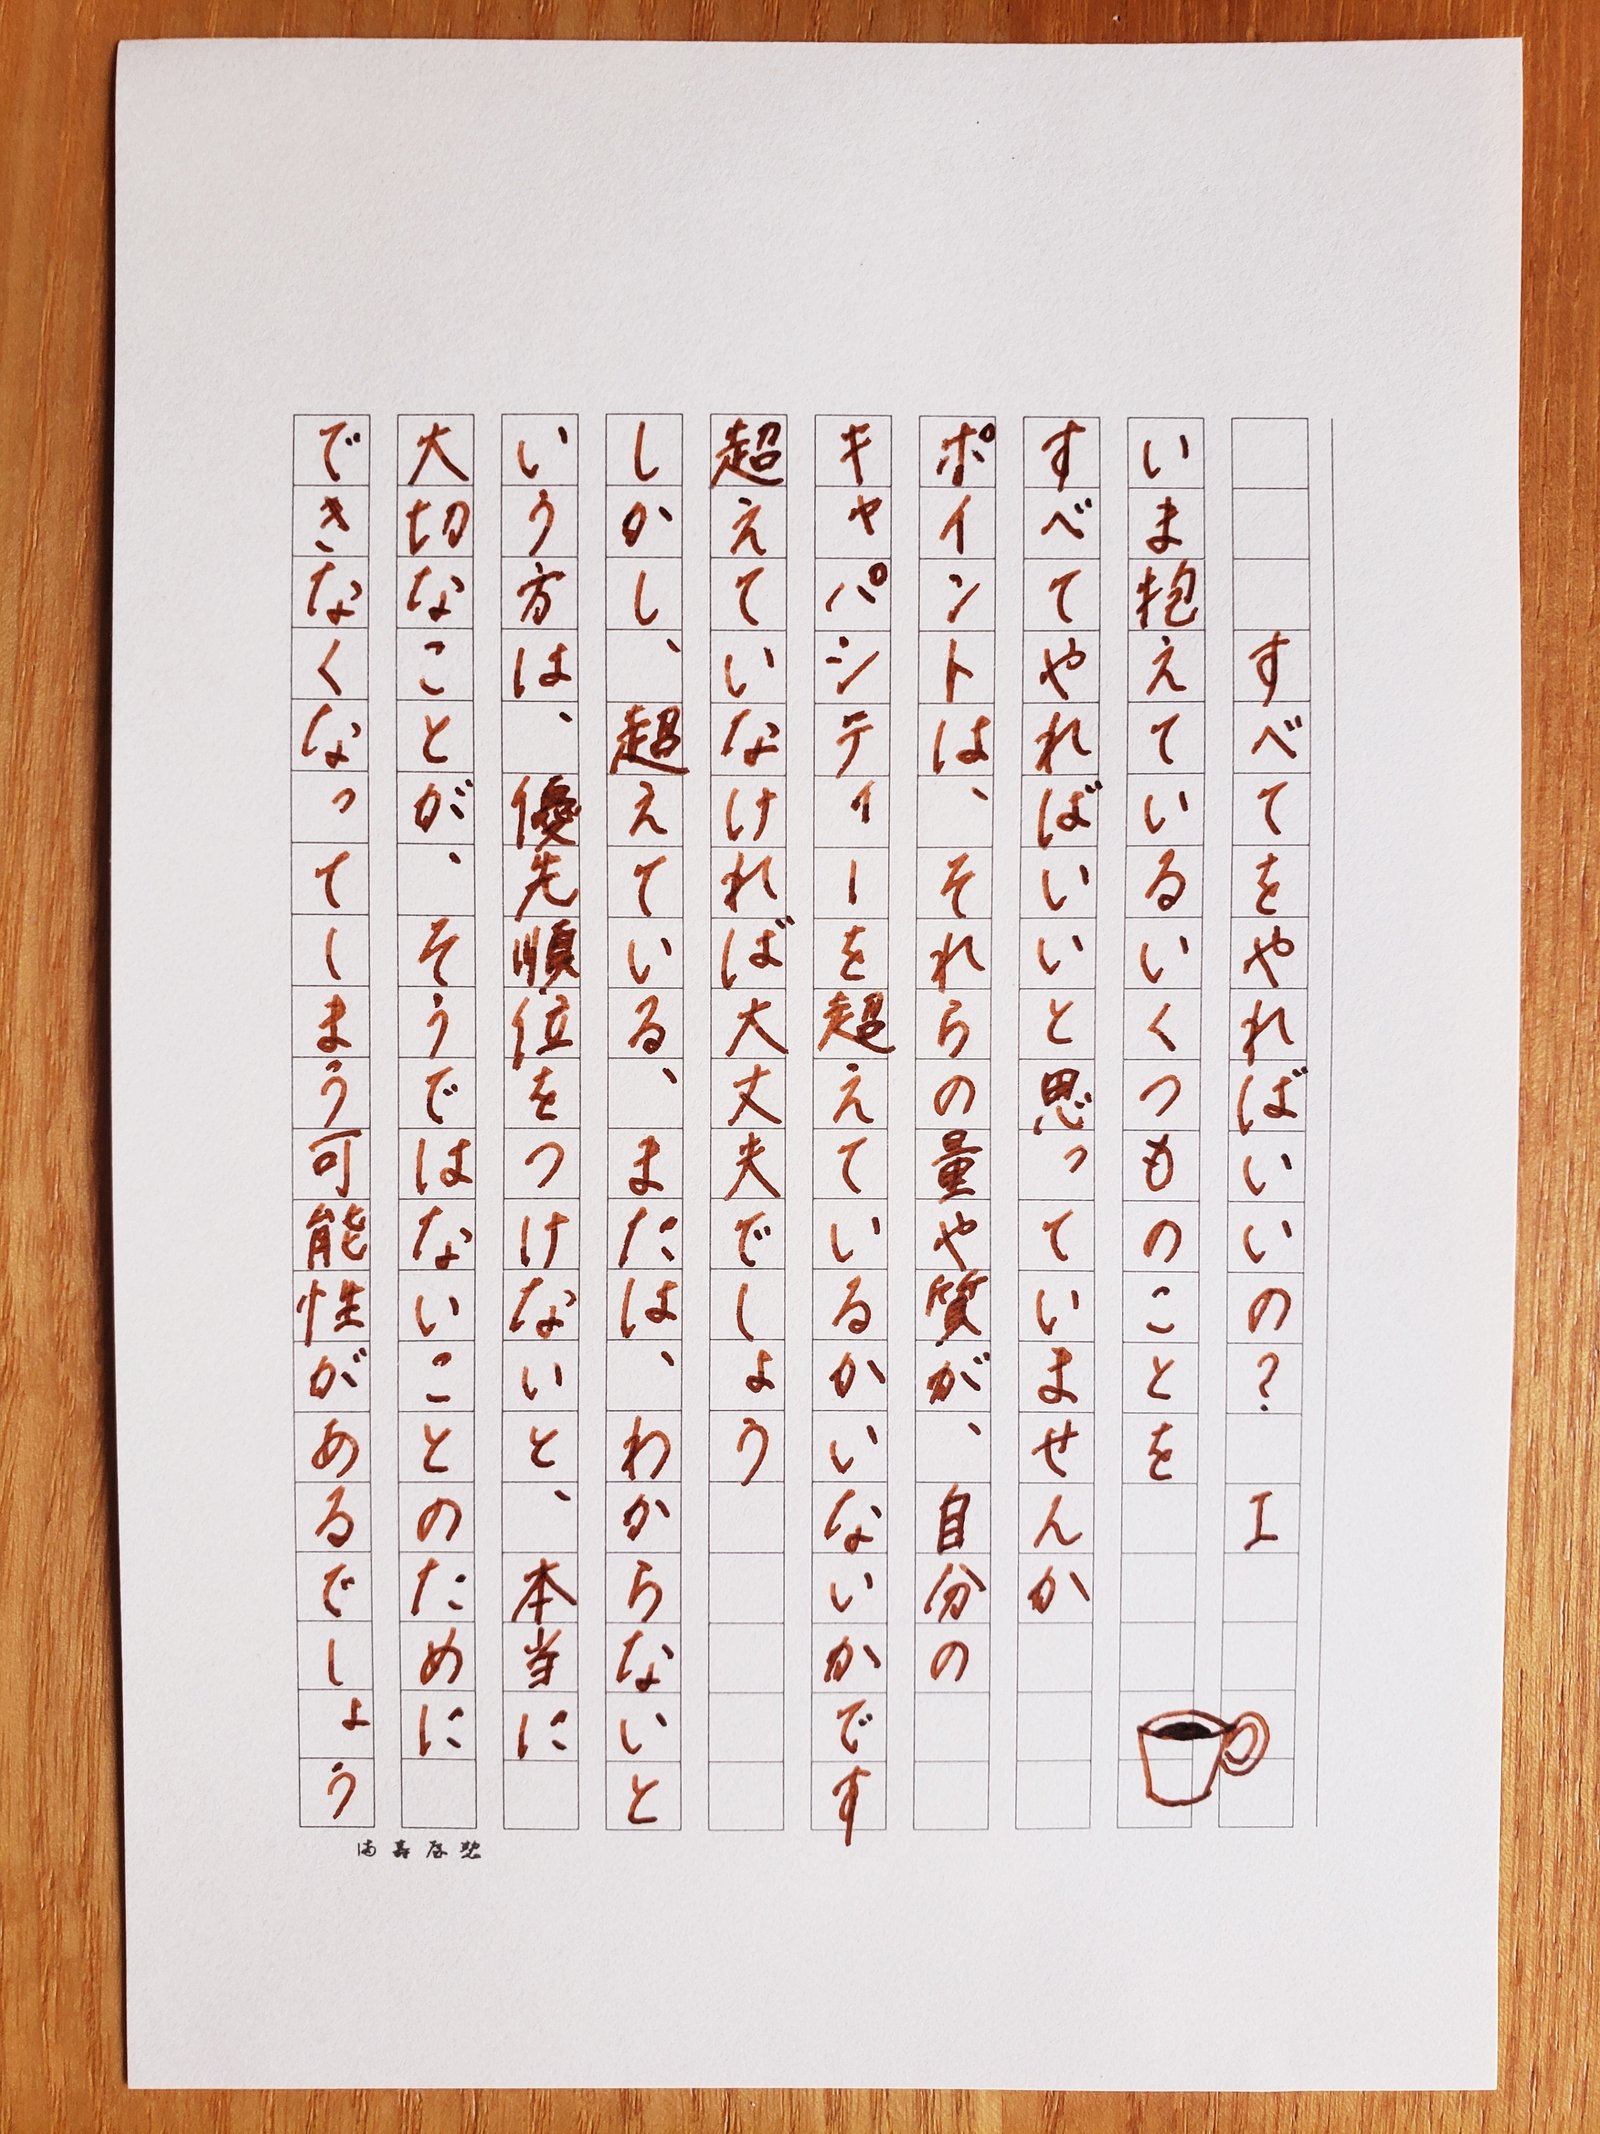 すべてをやればいいの？ I
いま抱えているいくつものことを
すべてやればいいと思っていませんか
ポイントは、それらの量や質が、自分の
キャパシティーを超えているかいないかです
超えていなければ大丈夫でしょう
しかし、超えている、または、わからないと
いう方は、優先順位をつけないと、本当に
大切なことが、そうではないことのために
できなくなってしまう可能性があるでしょう